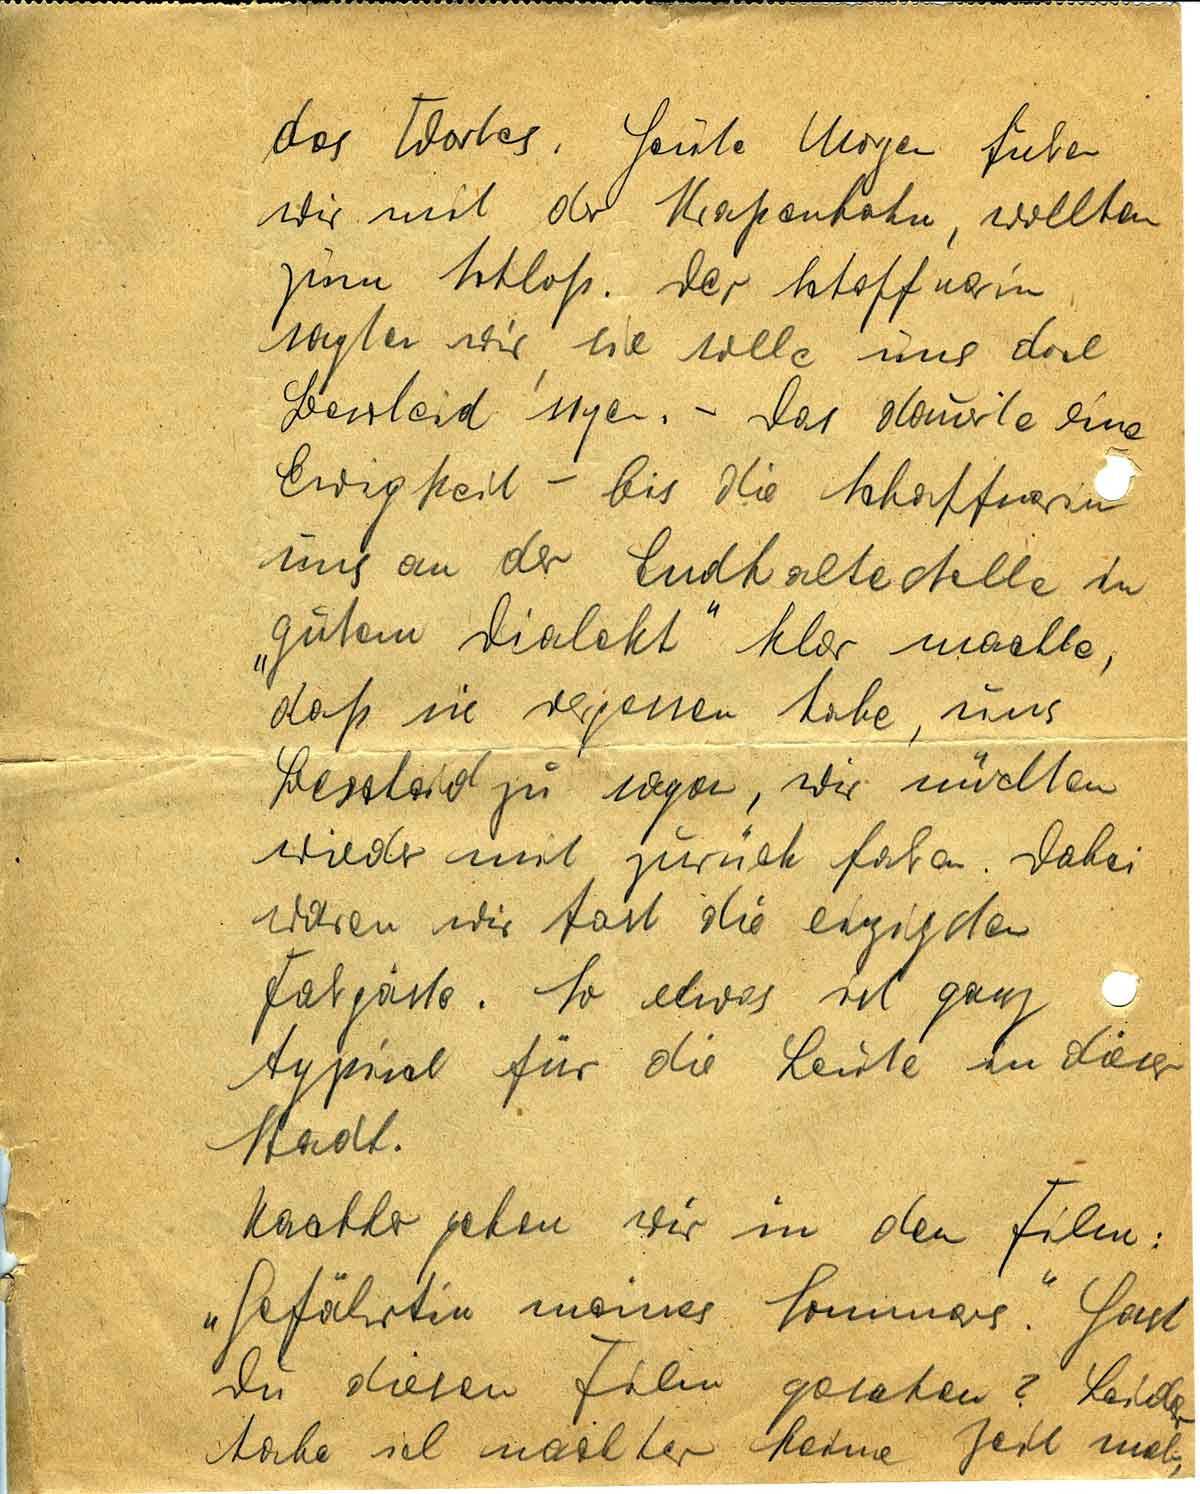 des Wortes. Heute Morgen fuhren
wir mit der Straßenbahn, wollten
zum Schloß. Der Schaffnerin
sagten wir, sie solle uns dort
Bescheid sagen. – Das dauerte eine
Ewigkeit – bis die Schaffnerin
uns an der Endhaltestelle in
„gutem Dialekt" klar machte,
daß sie vergessen habe, uns
Bescheid zu sagen, wir müßten
wieder mit zurück fahren. Dabei
waren wir fast die einzigsten
Fahrgäste. So etwas ist ganz
typisch für die Leute in dieser
Stadt.
Nachher gehen wir in den Film:
„Gefährtin meines Sommers." Hast
Du diesen Film gesehen? Leider
habe ich nachher keine Zeit mehr,